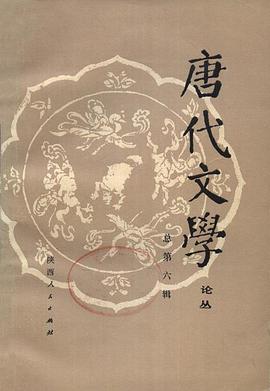 唐代文學
论丛
总第六辑
陕西人民出版社